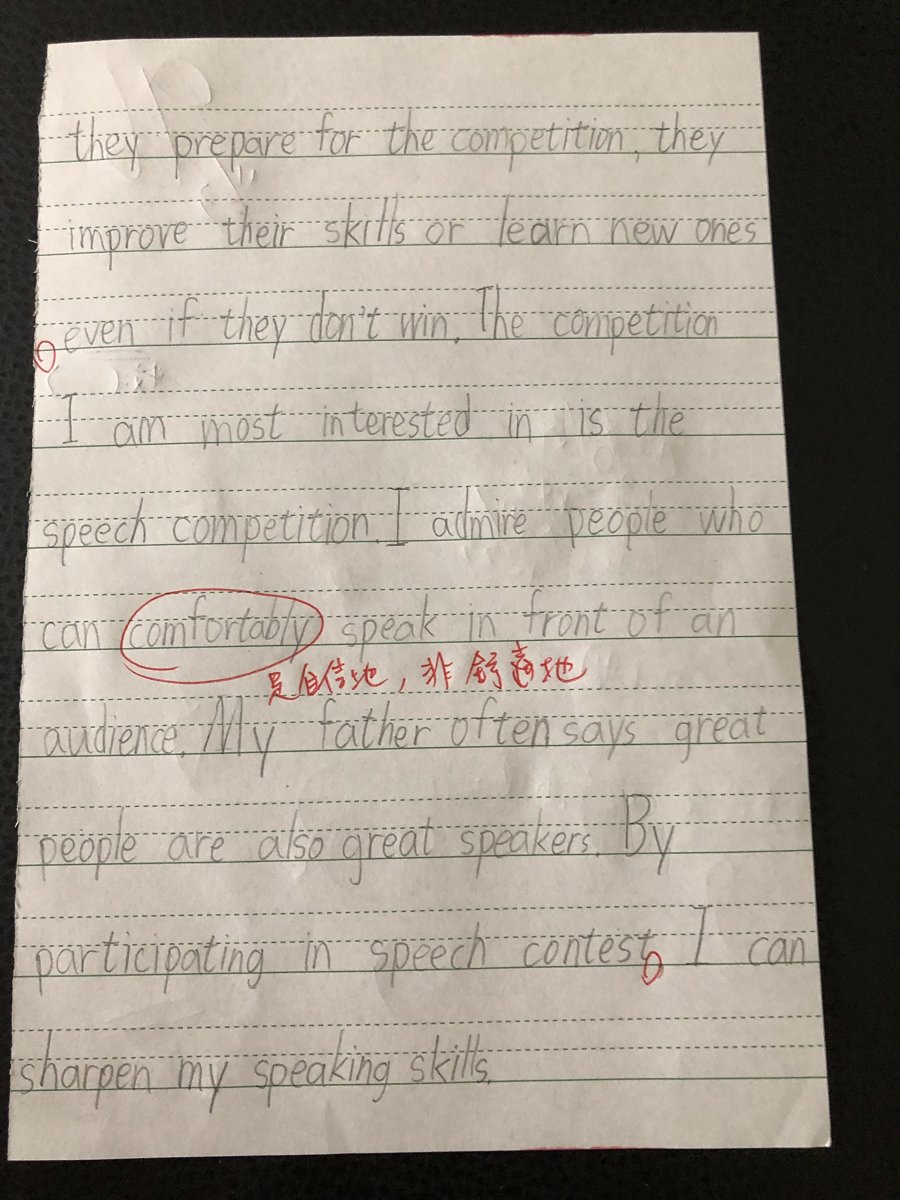 they prepare for the competition, they
improve their skills or learn new ones
even if they don't win. The competition
I am most interested in is the
speech competition. I admire people who
can comfortably speak in front of an
是自信地，非舒适地
audience. My father often says great
people are also great speakers. By
participating in speech contest, I can
sharpen my speaking skills.